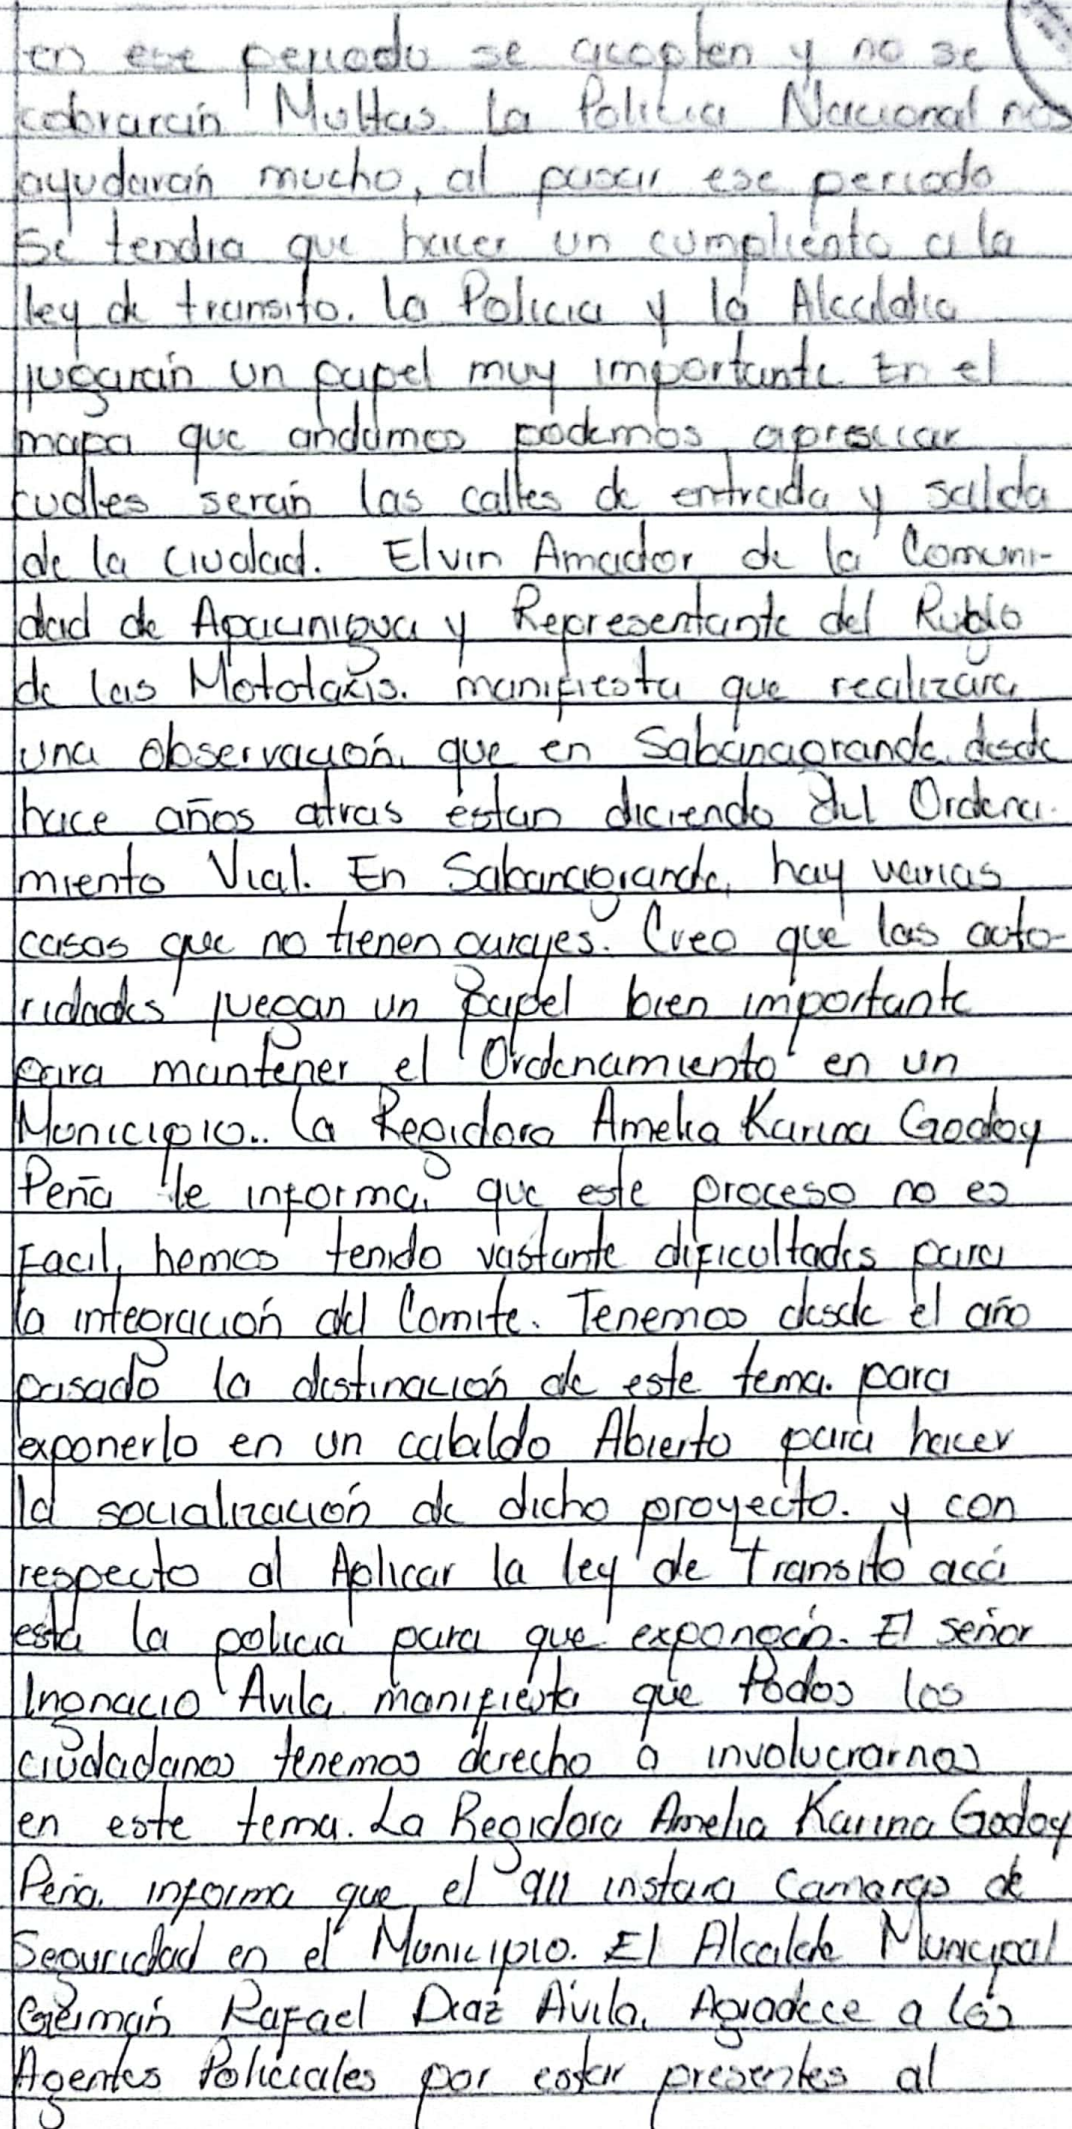 en ese periodo se acoplen y no se
cobrarán Multas. La Policia Nacional nos
ayudarán mucho, al pasar ese periodo
se tendria que hacer un cumpliento a la
ley de transito. La Policia y la Alcaldia
jugarán un papel muy importante. En el
mapa que andamos podemos apreciar
cuales serán las calles de entrada y salida
de la ciudad. Elvin Amador de la Comuni-
dad de Apacunigua y Representante del Rubio
de las Mototaxis. manifiesta que realizara
una observación que en Sabanagrande desde
hace años atras estan diciendo del Ordena-
miento Vial. En Sabanagrande, hay varias
casas que no tienen garajes. Creo que las auto-
ridades juegan un papel bien importante
para mantener el Ordenamiento en un
Municipio.. La Regidora Amelia Karina Godoy
Peña le informa, que este proceso no es
Facil, hemos tenido vastante dificultades para
la integración del Comite. Tenemos desde el año
pasado la destinación de este tema. para
exponerlo en un cabildo Abierto para hacer
la socialización de dicho proyecto. y con
respecto al Aplicar la ley de Transito acá
está la policia para que expongán. El señor
Ingnacio Avila manifiesta que todos los
ciudadanos tenemos derecho a involucrarnos
en este tema. La Regidora Amelia Karina Godoy
Peña. informa que el 911 instara Camaras de
Seguridad en el Municipio. El Alcalde Municipal
Germán Rafael Diaz Avila, Agradece a los
Agentes Policiales por estar presentes al